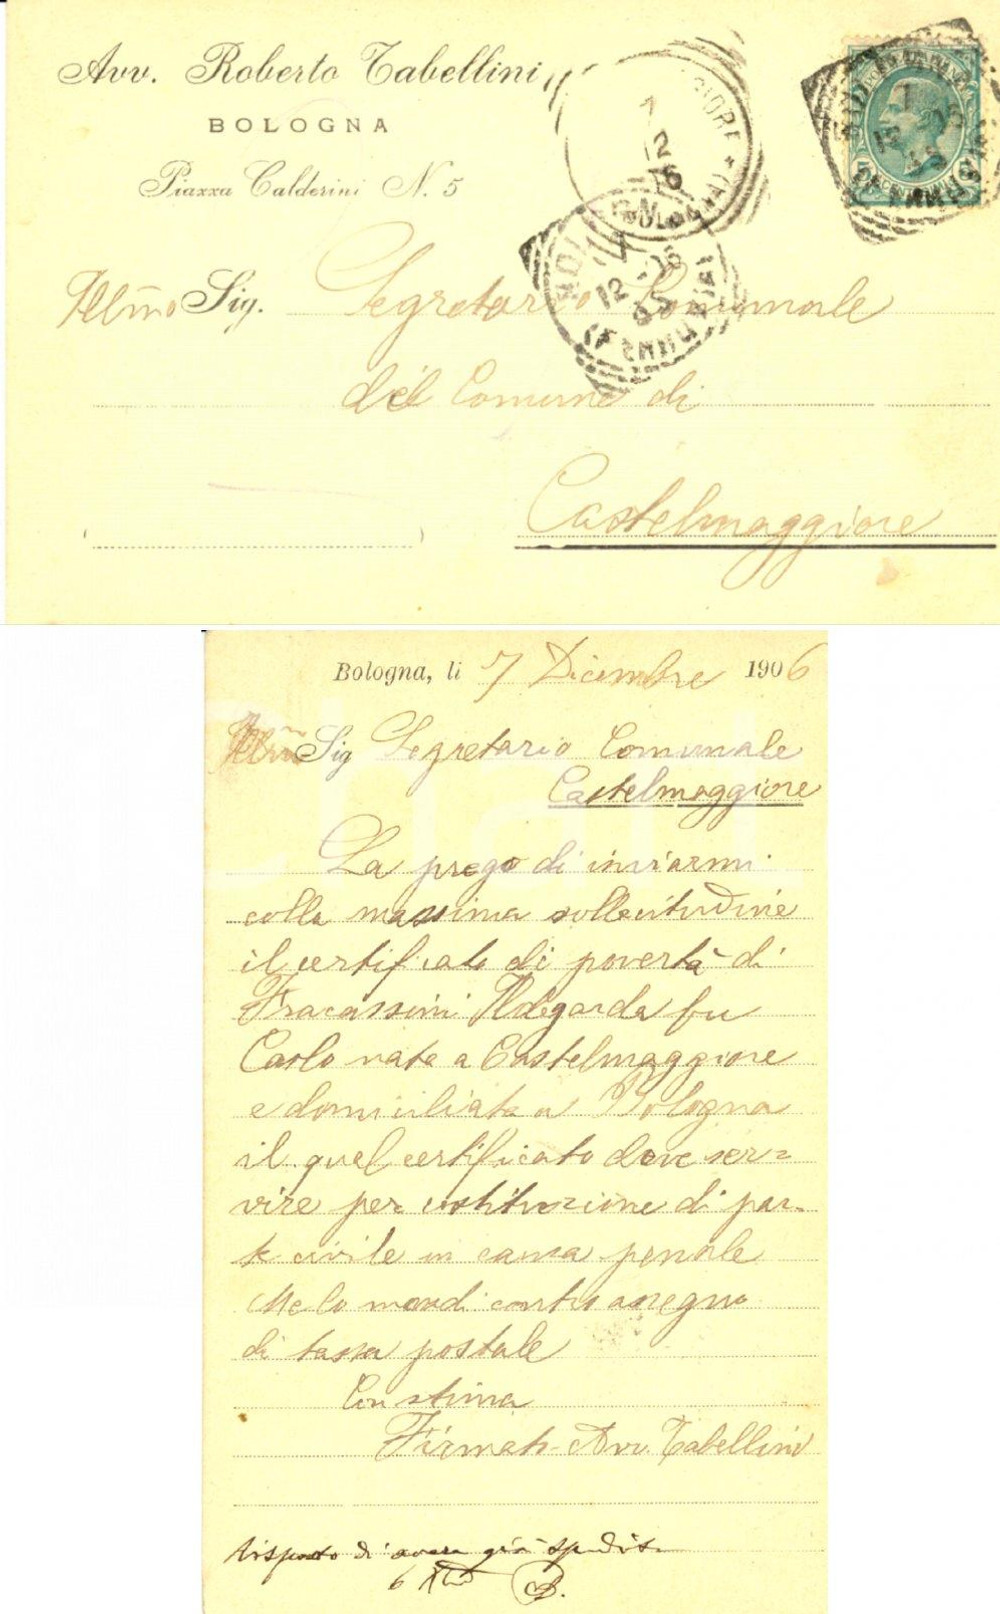 Avv. Roberto Tabellini
BOLOGNA
Piazza Calderini N. 5
Ill͞mo Sig. Segretario Comunale
del Comune di
Castelmaggiore
7
12
06
7
12-06
Bologna, li 7 Dicembre 1906
Ill͞mo Sig Segretario Comunale
Castelmaggiore
La prego di inviarmi
colla massima sollecitudine
il certificato di povertà di
Fracassini Ildegarda fu
Carlo nata a Castelmaggiore
e domiciliata a Bologna
il quel certificato deve ser=
vire per costituzione di par-
te civile in causa penale
Me lo mandi contro assegno
di tassa postale
Con stima
Firmato Avv. Tabellini
risposto di avere già spedito
6